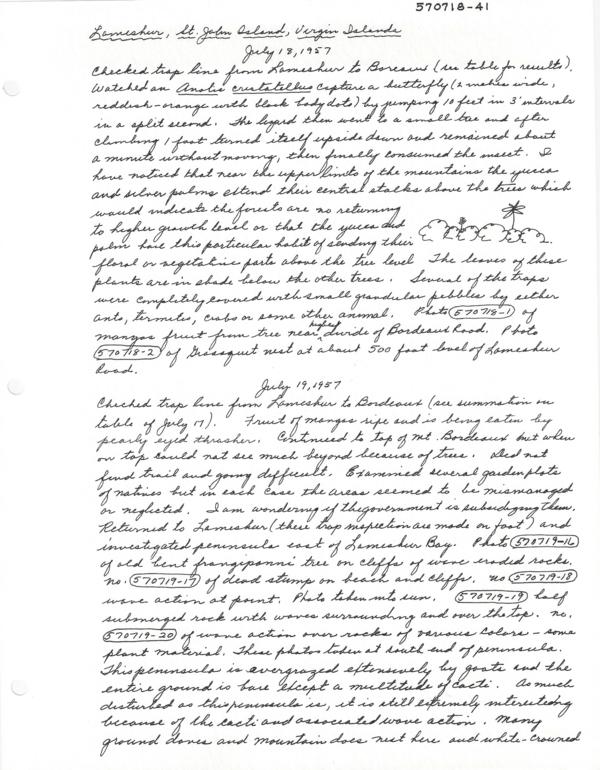 570718-41
Lameshur, St. John Island, Virgin Islands
July 18, 1957
Checked trap line from Lameshur to Boreaux (see table for results).
Watched an Anolis cristatellus capture a butterfly (2 inches wide,
reddish-orange with black body dots) by jumping 10 feet in 3' intervals
in a split second. The lizard then went to a small tree and after
climbing 1 foot turned itself upside down and remained about
a minute without moving, then finally consumed the insect. I
have noticed that near the upper limits of the mountains the yucca
and silver palms extend their central stalks above the trees which
would indicate the forests are no returning
to higher growth level or that the yucca and
palm have this particular habit of sending their
floral or vegetative parts above the tree level. The leaves of these
plants are in shade below the other trees. Several of the traps
were completely covered with small grandular pebbles by either
ants, termites, crabs or some other animal. Photo 570718-1 of
mangos fruit from tree near highest divide of Bordeaux Road. Photo
570718-2 of Grassquit nest at about 500 foot level of Lameshur
Road.
July 19, 1957
Checked trap line from Lameshur to Bordeaux (see summation on
table of July 17). Fruit of mangos ripe and is being eaten by
pearly eyed thrasher. Continued to top of Mt. Bordeaux but when
on top could not see much beyond because of trees. Did not
find trail and going difficult. Examined several garden plots
of natives but in each case the areas seemed to be mismanaged
or neglected. I am wondering if the government is subsidizing them.
Returned to Lameshur (these trap inspection are made on foot) and
investigated peninsula east of Lameshur Bay. Photo 570719-16
of old bent frangiponni tree on cliffs of wave eroded rocks.
no. 570719-17 of dead stump on beach and cliffs. no 570719-18
wave action at point. Photo taken into sun. 570719-19 half
submerged rock with waves surrounding and over the top. no.
570719-20 of wave action over rocks of various colors - some
plant material. These photos taken at south end of peninsula.
This peninsula is overgrazed extensively by goats and the
entire ground is bare except a multitude of cacti. As much
disturbed as this peninsula is, it is still extremely interesting
because of the cacti and associated wave action. Many
ground doves and mountain doves nest here and white-crowned